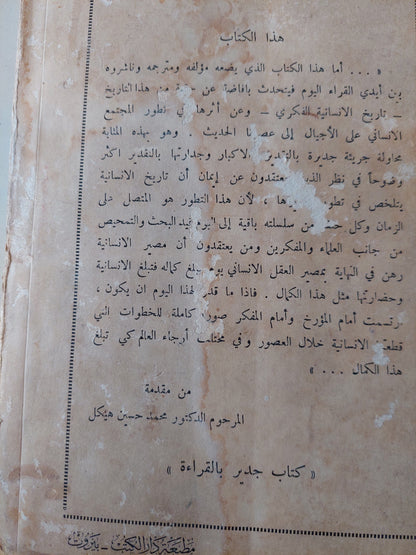 هذا الكتاب
« ... أما هذا الكتاب الذي يضعه مؤلفه ومترجمه وناشروه
بين أيدي القراء اليوم فيتحدث بافاضة عن من هذا التاريخ
– تاريخ الانسانية الفكري – وعن أثرها في تطور المجتمع
الانساني على الأجيال إلى عصرنا الحديث . وهو بهذه المثابة
محاولة جريئة جديرة بالتقدير والاكبار وجدارتها بالتقدير أكثر
وضوحاً في نظر الذين يعتقدون عن إيمان أن تاريخ الانسانية
يتلخص في تطور ، لأن هذا التطور هو المتصل على
الزمان وكل من سلسلته باقية إلى اليوم قيد البحث والتمحيص
من جانب العلماء والمفكرين ومن يعتقدون أن مصير الانسانية
رهن في النهاية بمصير العقل الانساني يوم يبلغ كماله فتبلغ الانسانية
وحضارتها مثل هذا الكمال . فاذا ما قدر لهذا اليوم ان يكون ،
ارتسمت أمام المؤرخ وأمام المفكر صورة كاملة للخطوات التي
قطعتها الانسانية خلال العصور وفي مختلف أرجاء العالم كي تبلغ
هذا الكمال ... »
من مقدمة
المرحوم الدكتور محمد حسين هيكل
« كتاب جدير بالقراءة »
مطبعة دار الكتب - بيروت